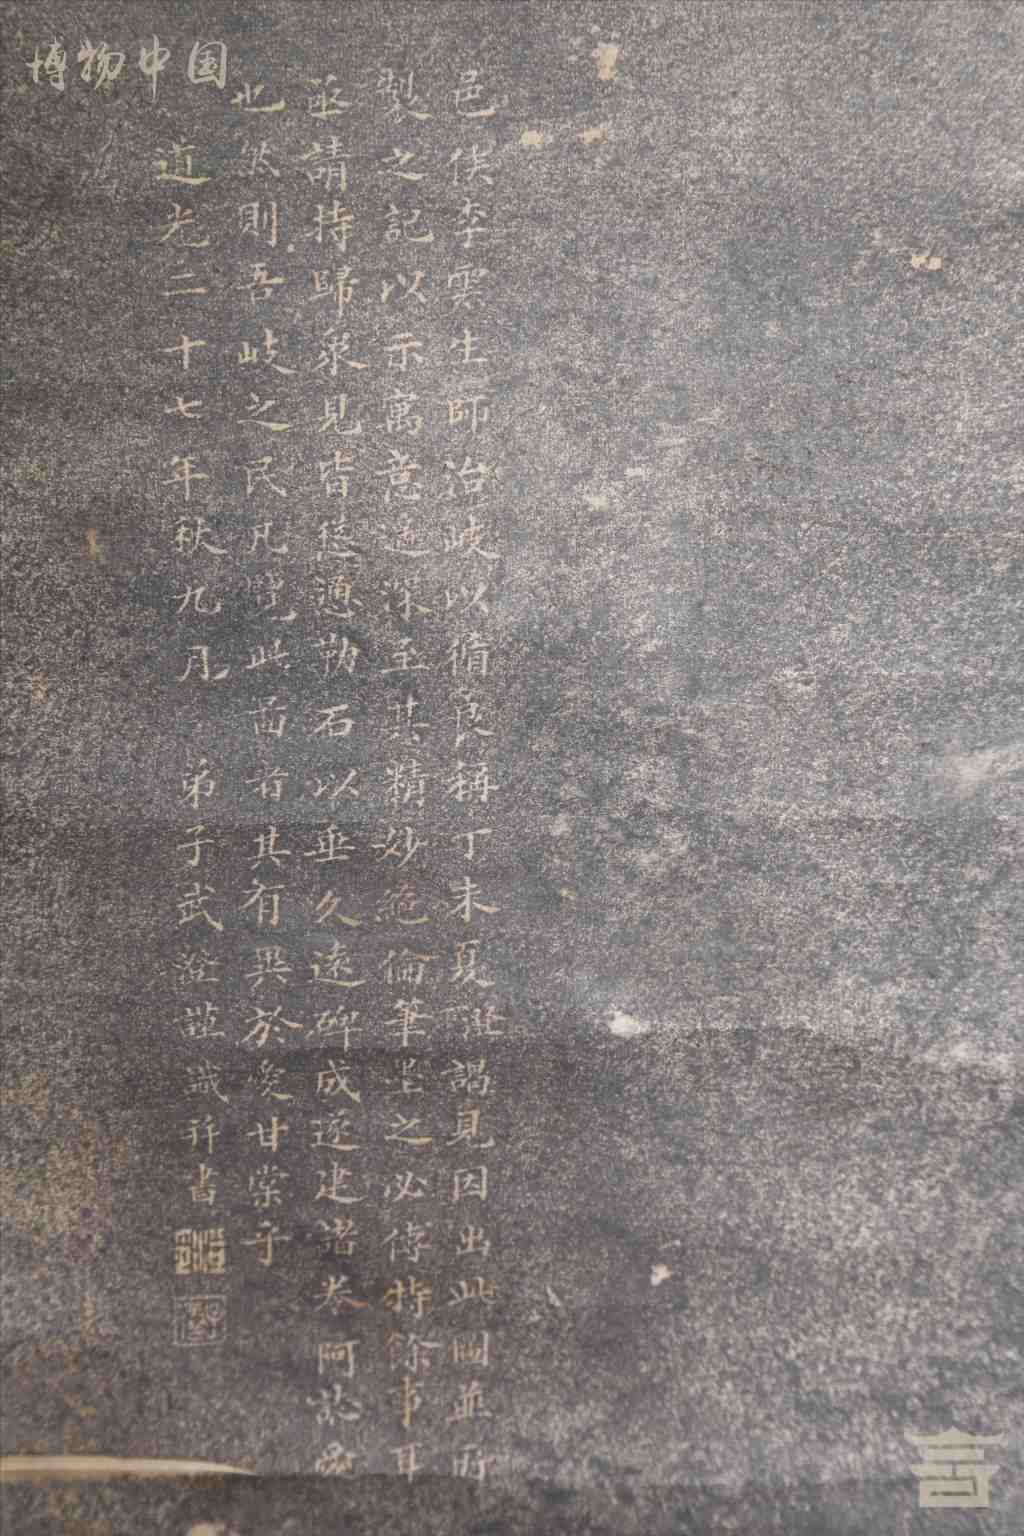 博物中国
邑侯李雲生師治岐以循良稱丁未夏澄謁見因出此圖並所
製之記以示寓意遙深至其精妙絕倫筆墨之必傳特餘事耳
亟請持歸衆見皆慫恿勒石以垂久遠碑成遂建諸卷阿
也然則吾岐之民凡覽此圖者其有異於愛甘棠乎
道光二十七年秋九月 弟子武澄謹識并書